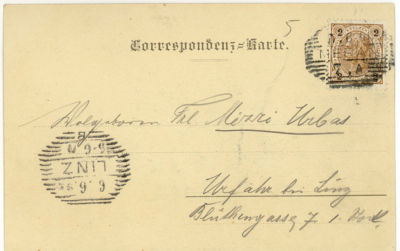 5
Correspondenz-Karte.
2 2
Wolgeboren Frl Mizzi Urbas
LINZ
6.6.98
Urfahr bei Linz
Blüthengasse 7 1. Stock